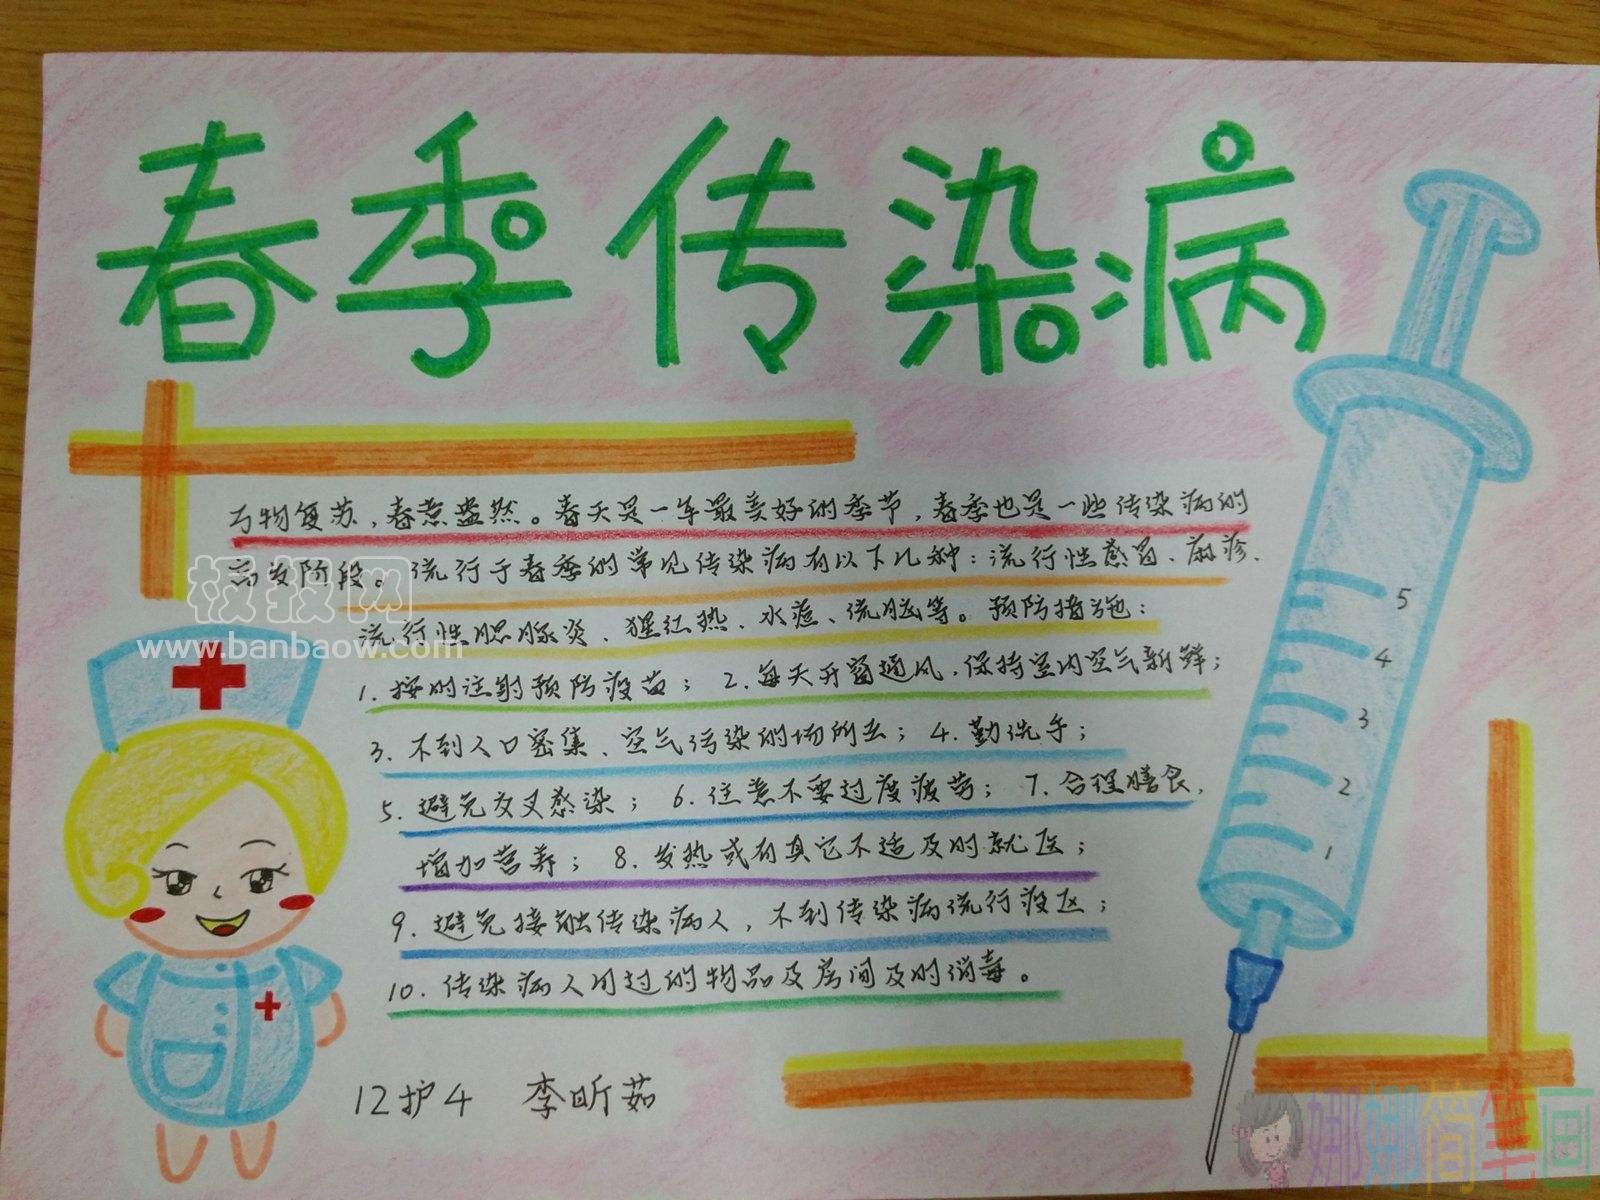 春季传染病
万物复苏，春意盎然。春天是一年最美好的季节，春季也是一些传染病的
高发阶段。流行于春季的常见传染病有以下几种：流行性感冒、麻疹、
流行性腮腺炎、猩红热、水痘、流脑等。预防措施：
1.按时注射预防疫苗；2.每天开窗通风，保持室内空气新鲜；
3.不到人口密集、空气污染的场所去；4.勤洗手；
5.避免交叉感染；6.注意不要过度疲劳；7.合理膳食，
增加营养；8.发热或有其它不适及时就医；
9.避免接触传染病人，不到传染病流行疫区；
10.传染病人用过的物品及房间及时消毒。
12护4 李昕茹
5
4
3
2
1
板报网
www.banbaow.com
娜娜简笔画